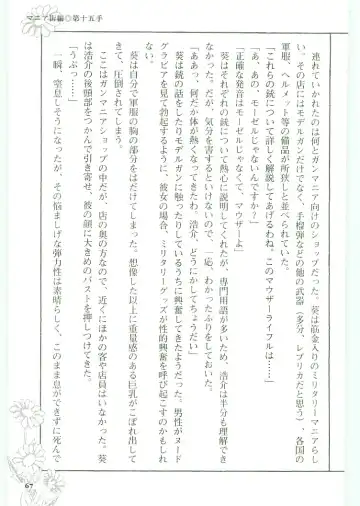 マニア街編◎第十五手
連れていかれたのは何とガンマニア向けのショップだった。葵は筋金入りのミリタリーマニアらし
い。その店にはモデルガンだけでなく、手榴弾などの他の武器（多分、レプリカだと思う）、各国の
軍服、ヘルメット等の備品が所狭しと並べられていた。
「これらの銃について詳しく解説してあげるわね。このマウザーライフルは……」
「あ、あの、モーゼルじゃないんですか？」
「正確な発音はモーゼルじゃなくて、マウザーよ」
葵はそれぞれの銃について熱心に説明してくれたが、専門用語が多いため、浩介は半分も理解でき
なかった。だが、気分を害するといけないので、一応、わかったふりをしておいた。
「ああっ、何だか体が熱くなってきたわ。浩介、どうにかしてちょうだい」
葵は銃の話をしたりモデルガンに触ったりしているうちに興奮してきたようだった。男性がヌード
グラビアを見て勃起するように、彼女の場合、ミリタリーグッズが性的興奮を呼び起こすのかもしれ
ない。
葵は自分で軍服の胸の部分をはだけてしまった。想像した以上に重量感のある巨乳がこぼれ出して
きて、圧倒されてしまう。
ここはガンマニアショップの中だが、店の奥の方なので、近くにほかの客や店員はいなかった。葵
は浩介の後頭部をつかんで引き寄せ、彼の顔に大きめのバストを押しつけてきた。
「うぷっ……」
一瞬、窒息しそうになったが、その悩ましげな弾力性は素晴らしく、このまま息ができずに死んで
67